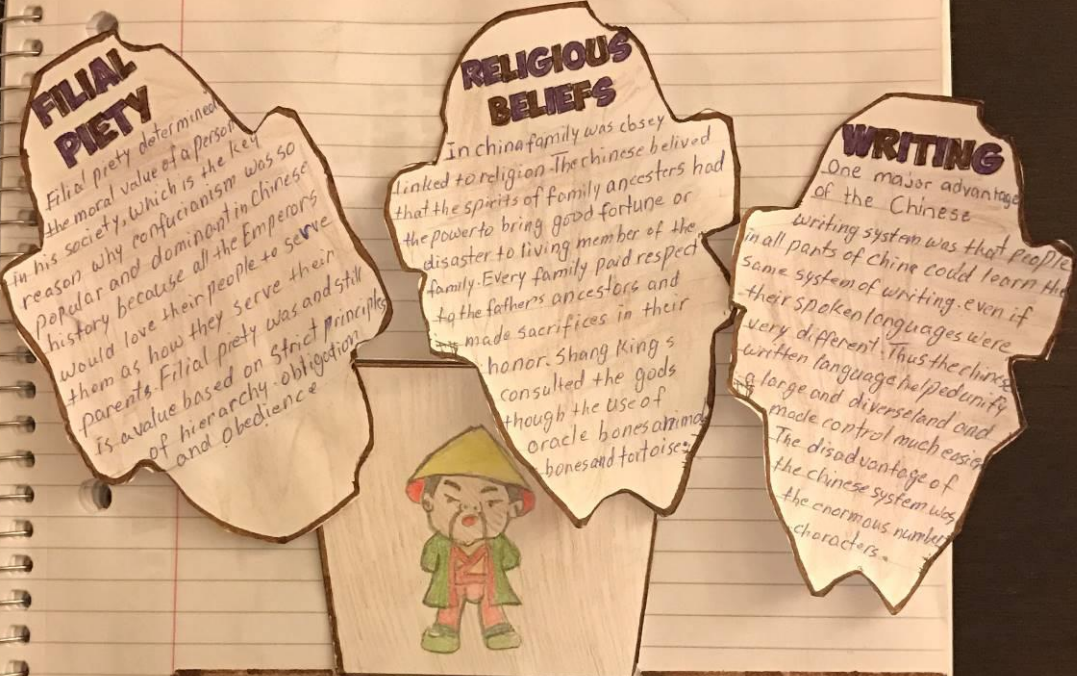 FILIAL
PIETY
Filial priety determined
the moral value of a person
in his society, which is the key
reason why confucianism was so
popular and dominant in Chinese
history because all the Emperors
would love their people to serve
them as how they serve their
parents. Filial priety was and still
is a value based on strict principles
of hierarchy. obligation
and obedience
RELIGIOUS
BELIEFS
In china family was cbsey
linked to religion The chinese belived
that the spirits of family ancesters had
the power to bring good fortune or
disaster to living member of the
family. Every family paid respect
to the father's ancestors and
made sacrifices in their
honor. Shang King s
consulted the gods
though the use of
oracle bones anima
bones and tortoise
WRITING
One major advantage
of the Chinese
writing system was that people
in all pants of Chine could learn the
same system of writing. even if
their spoken languages were
very different. Thus the chinese
written language helped unify
a large and diverse land and
made control much easier
The disadvantage of
the chinese system was
the enormous number
characters.